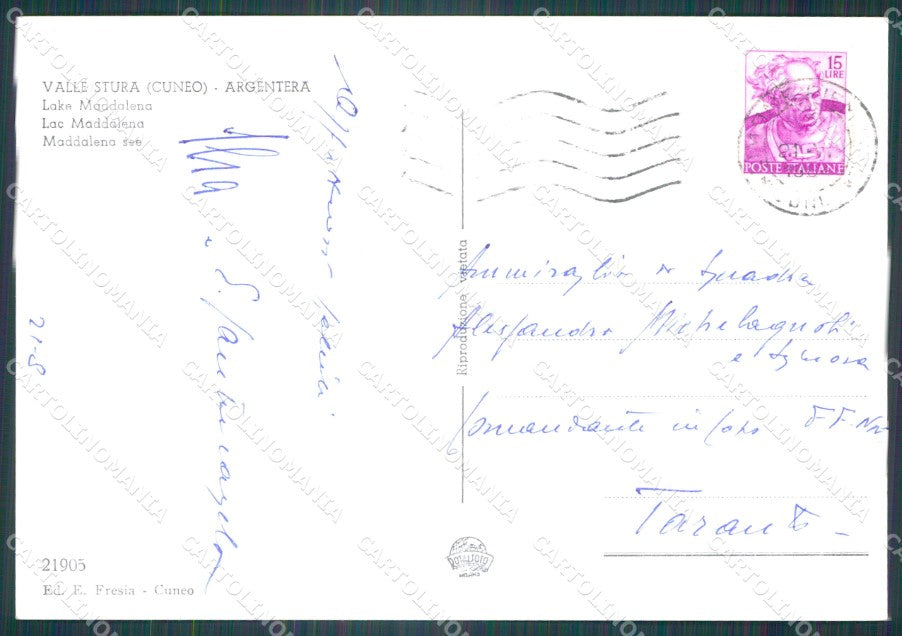 VALLE STURA (CUNEO) - ARGENTERA
Lake Maddalena
Lac Maddalena
Maddalena see
21-8
21905
Ed. E. Fresia - Cuneo
Riproduzione vietata
ROTALFOTO
MILANO
15
LIRE
POSTE ITALIANE
Ammiraglio di Squadra
Alessandro Michelagnoli
e Signora
Comandante in Capo FF. NN
Taranto
CARTOLINOMANIA